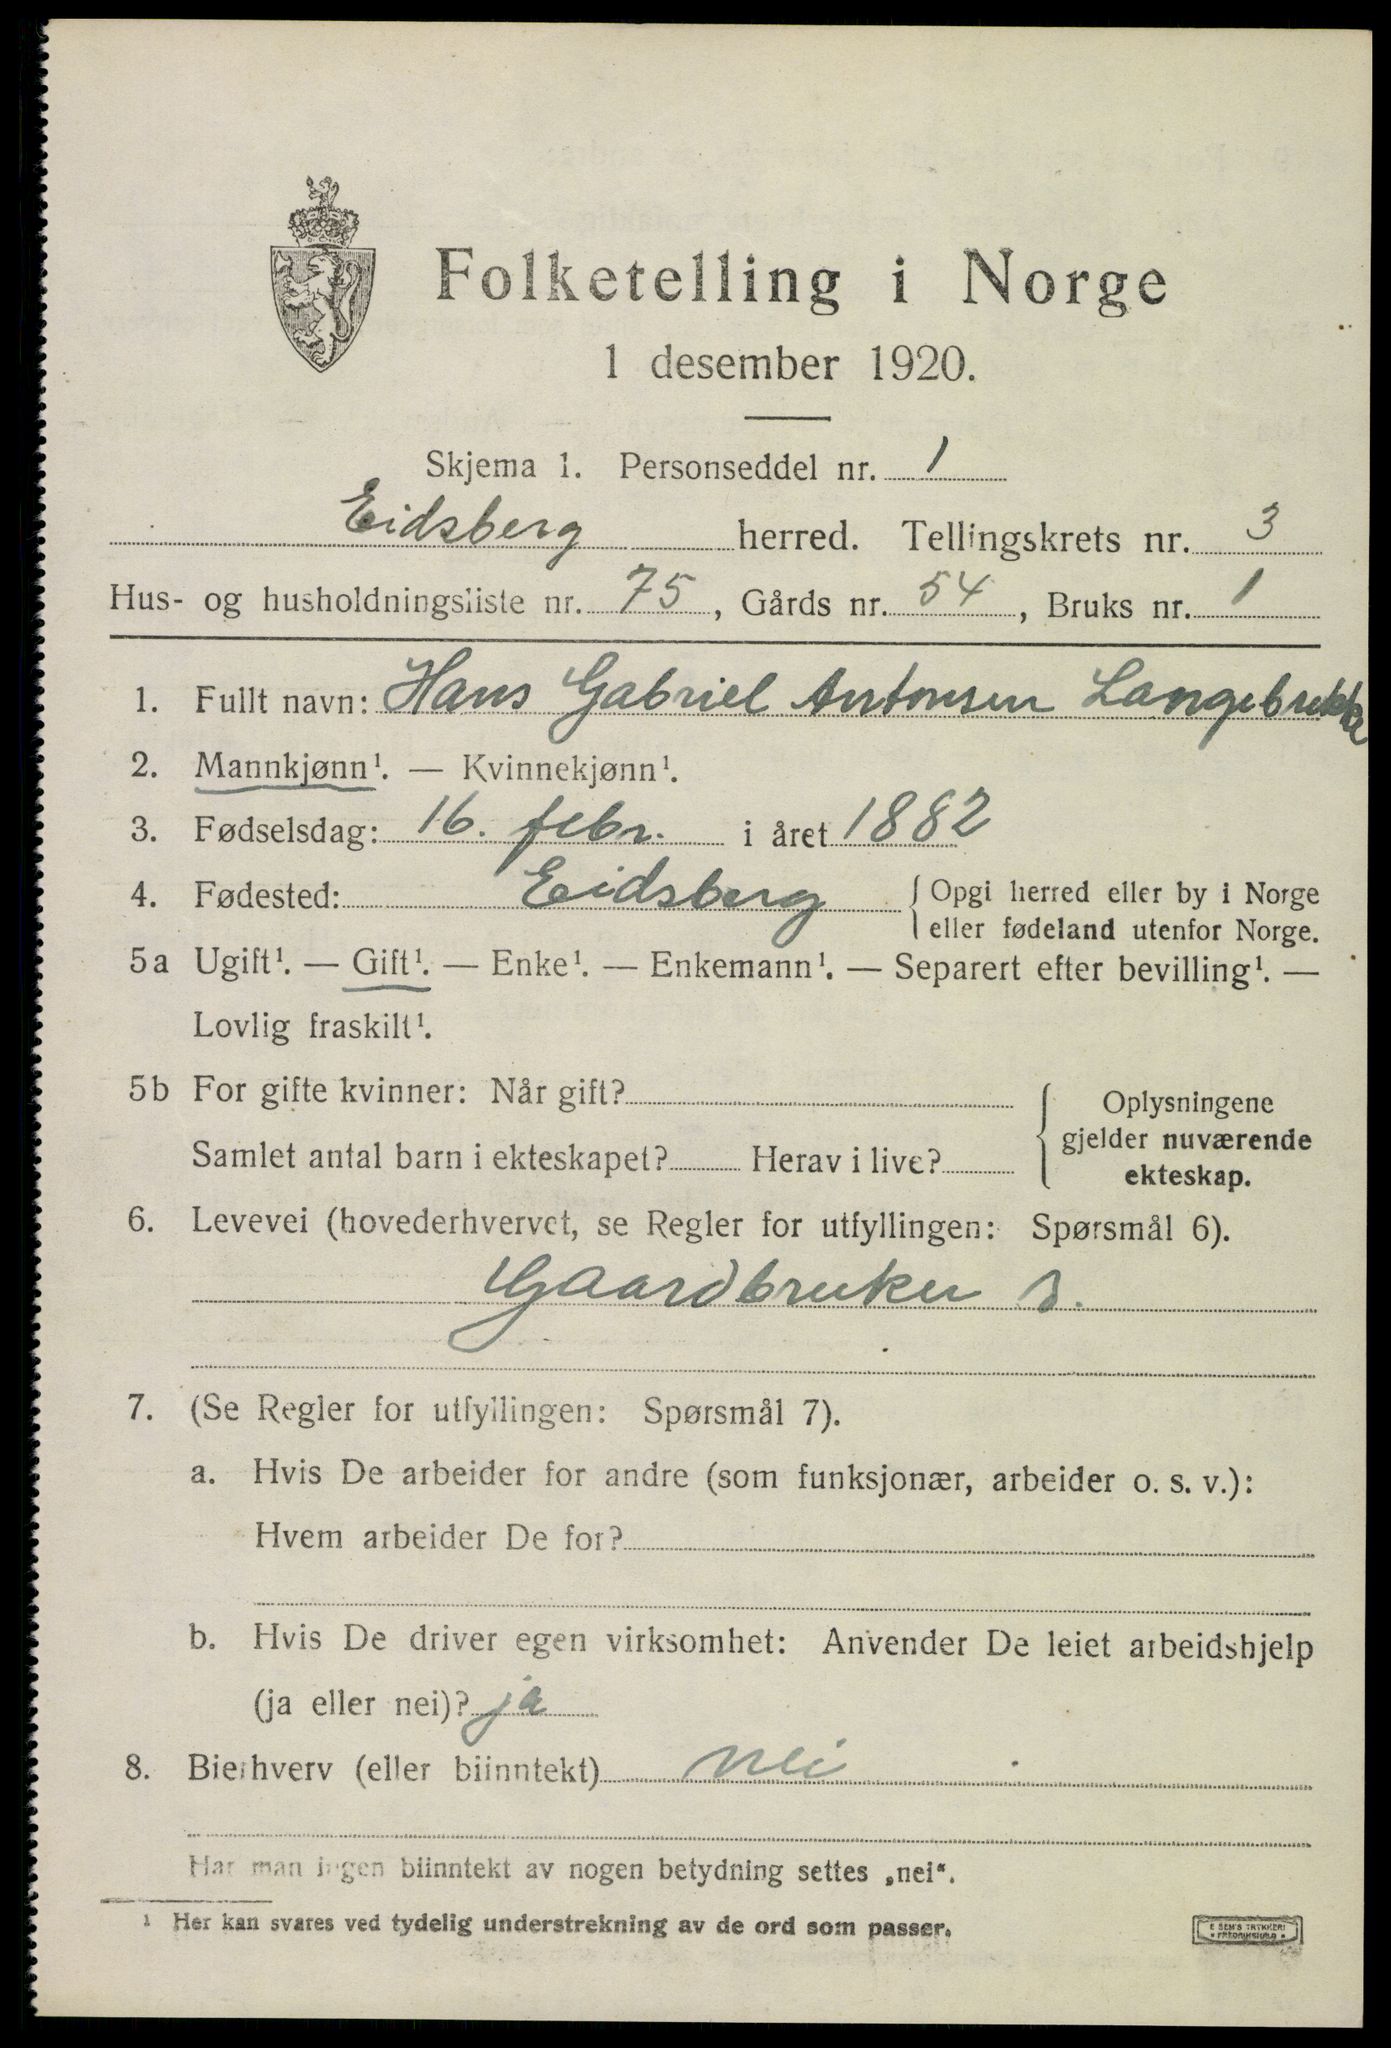 Folketelling i Norge
1 desember 1920.
Skjema 1. Personseddel nr. 1
Eidsberg herred. Tellingskrets nr. 3
Hus- og husholdningsliste nr. 75, Gårds nr. 54, Bruks nr. 1
1. Fullt navn: Hans Gabriel Antonsen Langebrekke
2. Mannkjønn¹. — Kvinnekjønn¹.
3. Fødselsdag: 16. febr. i året 1882
4. Fødested: Eidsberg { Opgi herred eller by i Norge
eller fødeland utenfor Norge.
5a Ugift¹. — Gift¹. — Enke¹. — Enkemann¹. — Separert efter bevilling¹. —
Lovlig fraskilt¹.
5b For gifte kvinner: Når gift?
Samlet antal barn i ekteskapet? Herav i live?
Oplysningene
gjelder nuværende
ekteskap.
6. Levevei (hovederhvervet, se Regler for utfyllingen: Spørsmål 6).
Gaardbruker s.
7. (Se Regler for utfyllingen: Spørsmål 7).
a. Hvis De arbeider for andre (som funksjonær, arbeider o. s. v.):
Hvem arbeider De for?
b. Hvis De driver egen virksomhet: Anvender De leiet arbeidshjelp
(ja eller nei)? ja
8. Bierhverv (eller biinntekt) nei
Har man ingen biinntekt av nogen betydning settes „nei“.
¹ Her kan svares ved tydelig understrekning av de ord som passer.
E SEM'S TRYKKERI
FREDRIKSHALD